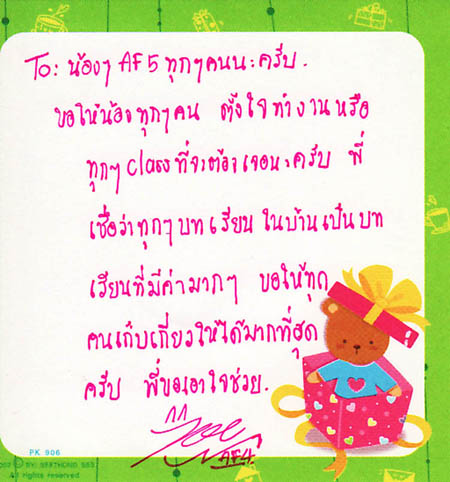 To: น้องๆ AF5 ทุกๆคนนะครับ.
ขอให้น้องทุกๆคน ตั้งใจทำงานหรือ
ทุกๆ class ที่จะต้องเจอนะครับ พี่
เชื่อว่าทุกๆบทเรียนในบ้านเป็นบท
เรียนที่มีค่ามากๆ ขอให้ทุก
คนเก็บเกี่ยวให้ได้มากที่สุด
ครับ พี่ขอเอาใจช่วย.
AF4.
PK 906
All rights reserved